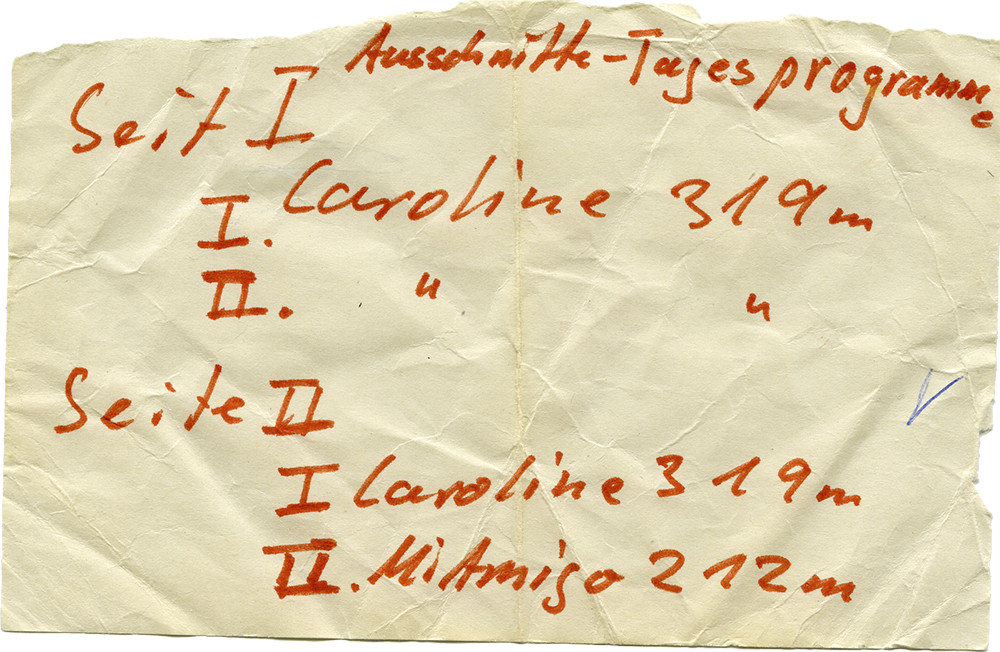 Ausschnitte-Tagesprogramme
Seit I
I. Caroline 319m
II. " "
Seite II
I Caroline 319m
II. Mi Amigo 212m